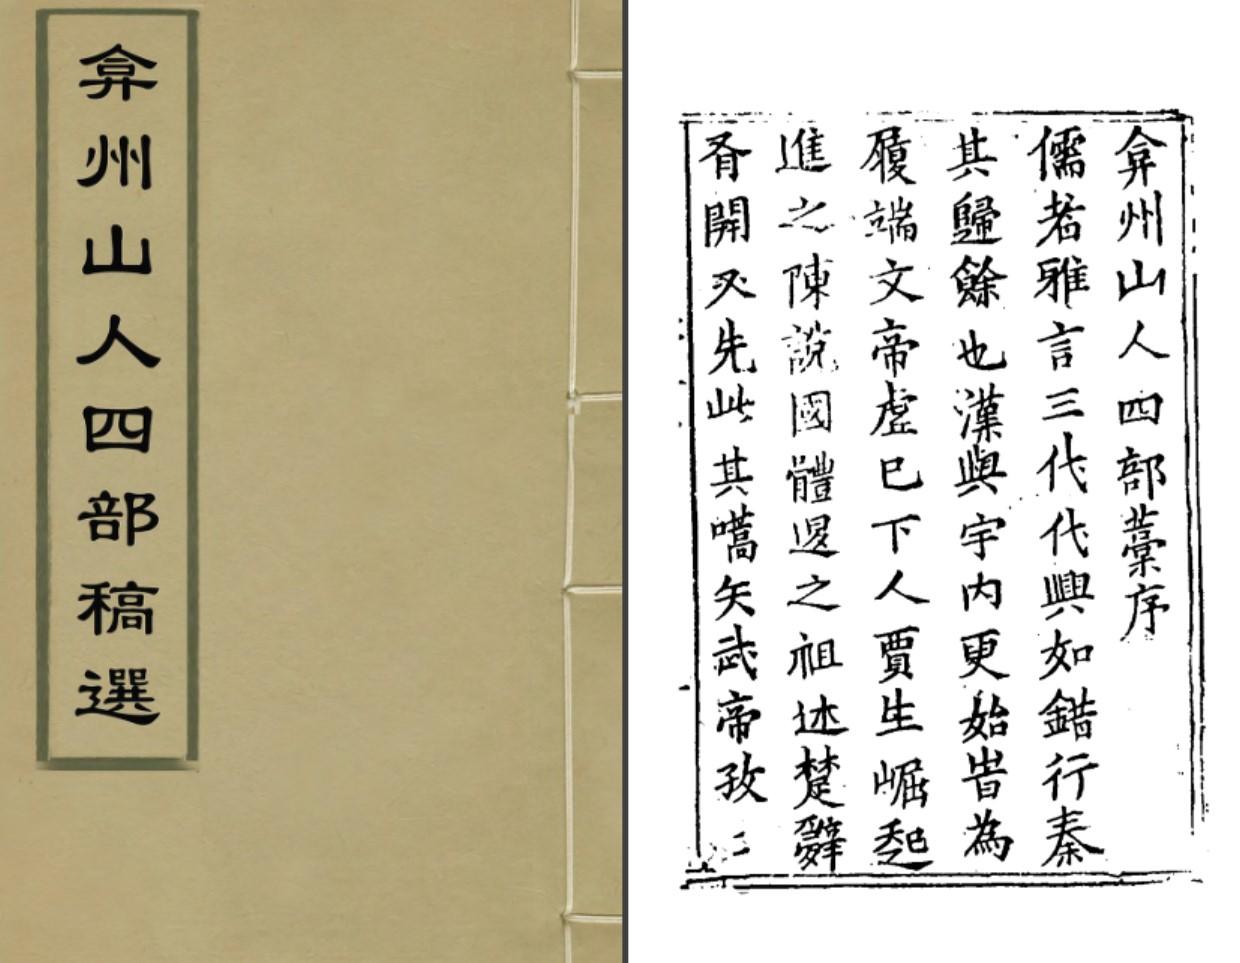 弇州山人四部稿選
弇州山人四部藁序
儒者雅言三代代興如錯行秦
其歸餘也漢興宇内更始旹為
履端文帝虛已下人賈生崛起
進之陳說國體退之祖述楚辭
胥開必先此其嚆矢武帝孜二